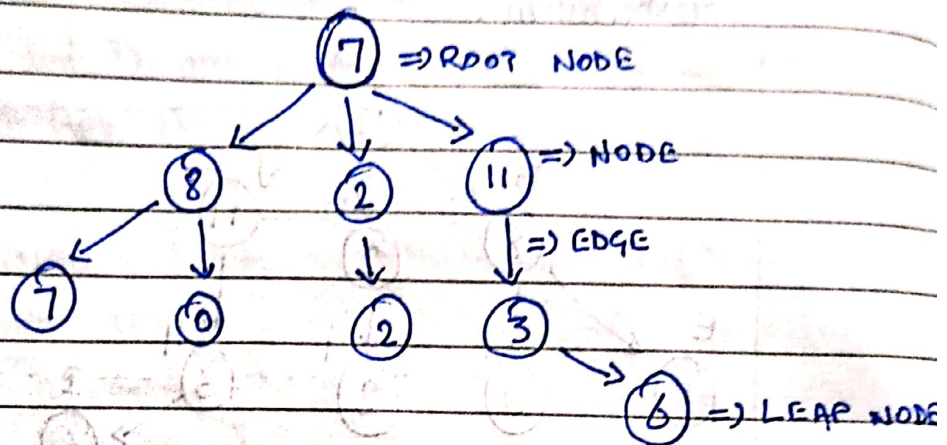 7 => ROOT NODE
8 2 11 => NODE
=> EDGE
7 0 2 3
6 => LEAF NODE